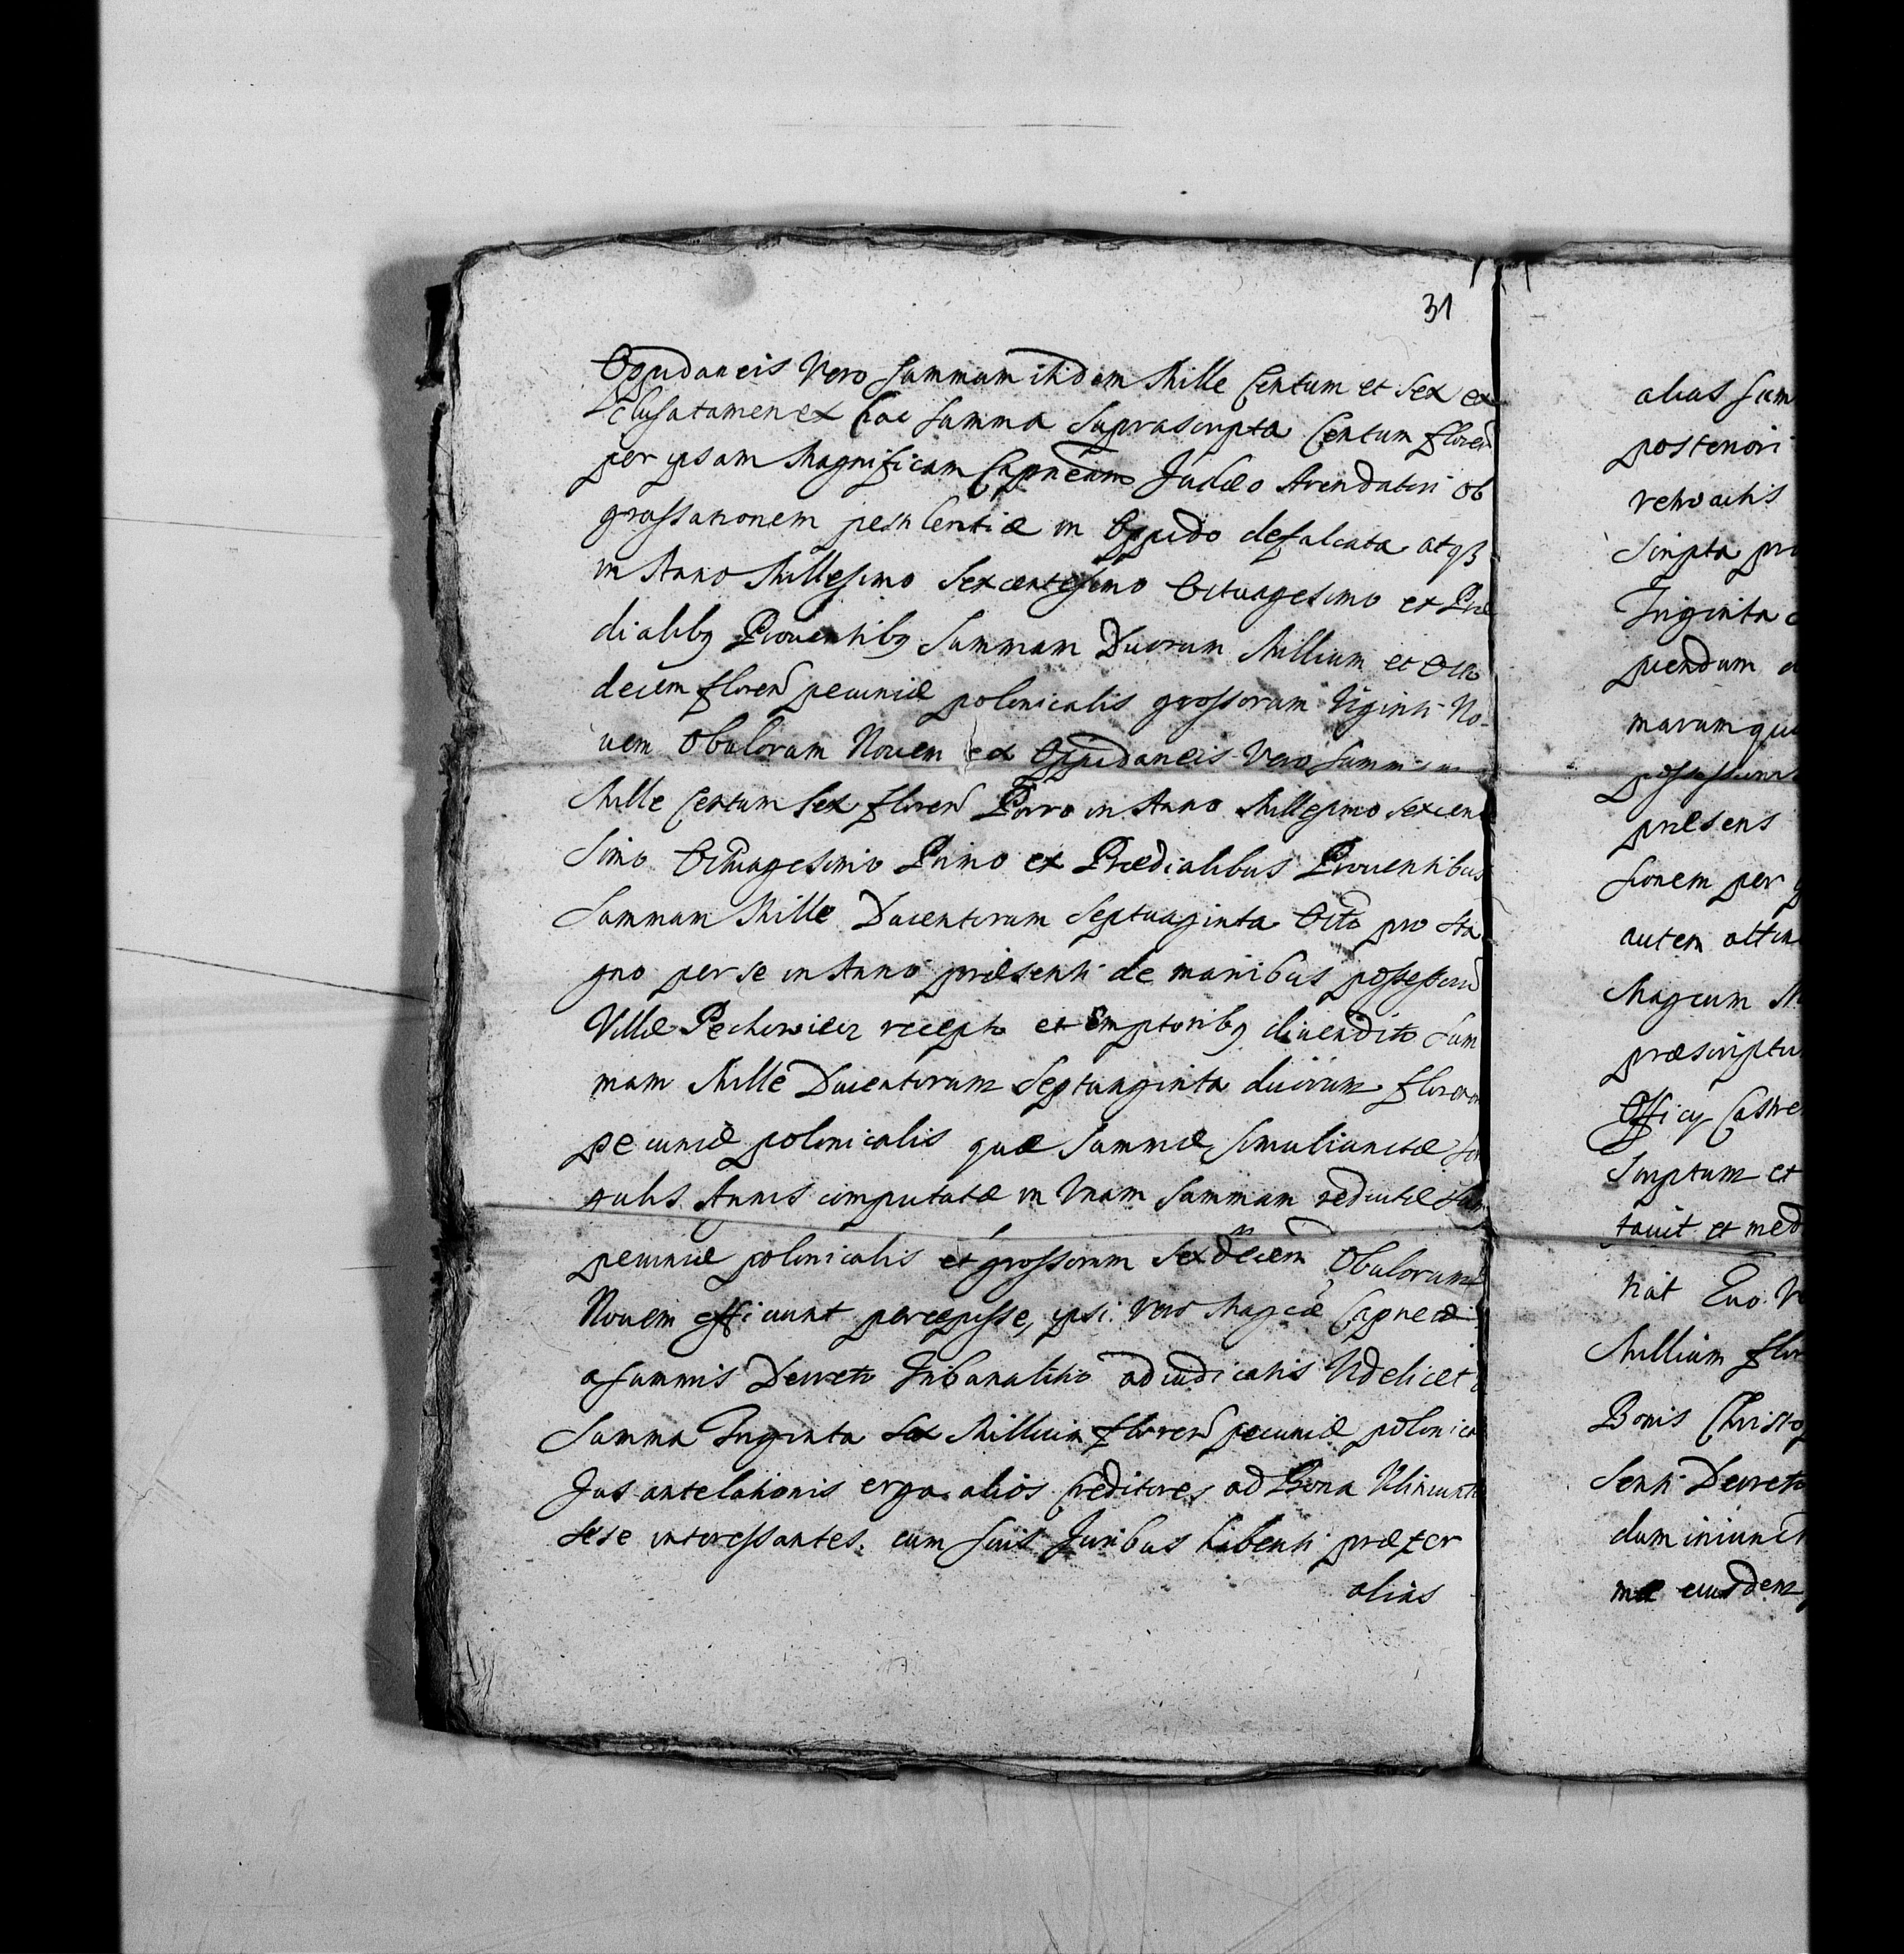 31
Oppidaneis Vero Summam itidem Mille Centum et Sex ex
clusa tamen ex hac Summa Suprascripta Centum floren
per ipsam Magnificam Capneam Judæo Arendatori ob
grassationem pestilentiæ in Oppido defalcata atqȝ
in Anno Millesimo Sexcentesimo Octuagesimo ex Præ
dialibȝ Prouentibȝ Summam Duorum Millium et Octo
decem floren pecuniæ polonicalis grossorum Viginti No-
uem Obulorum Nouem ex Oppidaneis Vero Summam
Mille Centum Sex floren Porro in Anno Millesimo Sexcente
Simo Octuagesimo Primo ex Prædialibus Prouentibus
Summam Mille Ducentorum Septuaginta Octo pro Sta
gno per se in Anno præsenti de manibus possessorum
Villæ recepto et Emptoribȝ diuendito Sum
mam Mille Ducentorum Septuaginta duorum florenorum
pecuniæ polonicalis quæ Summæ Simul iunctæ Sin
gulis Annis computatæ in Vnam Summam redactæ
pecuniæ polonicalis et grossorum Sexdecem Obulorum
Nouem efficiunt percepisse, ipsi Vero Magcæ Capneæ
a Summis Decreto Tribunalitio adiudicatis Videlicet
Summa Triginta Sex Millium floren pecuniæ polonica
Jus antelationis erga alios Creditores ad Bona
sese interessantes cum suis Juribus habenti præter
alias
alias Sum
posteriori
retroactis
Scripta pr
Triginta
piendum
marum qu
possessiona
præsens
sionem per
autem attin
Magcum M
præscriptu
Officy Castre
Scriptum et
tauit et med
Millium flor
Bonis Christop
Senti Decreto
dum iniunct
mæ eiusdem